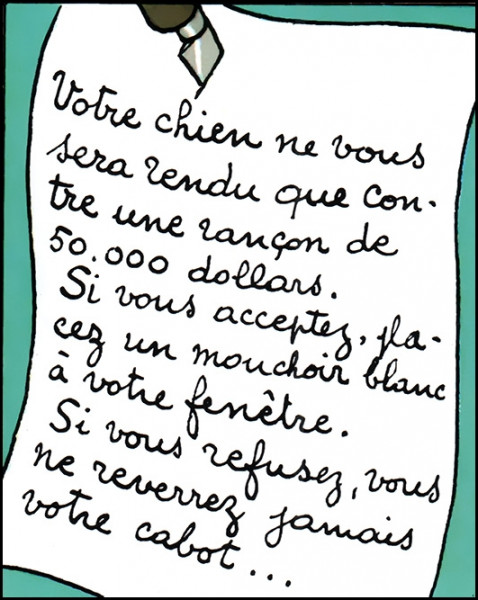 Votre chien ne vous
sera rendu que con-
tre une rançon de
50.000 dollars.
Si vous acceptez, pla-
cez un mouchoir blanc
à votre fenêtre.
Si vous refusez, vous
ne reverrez jamais
votre cabot...